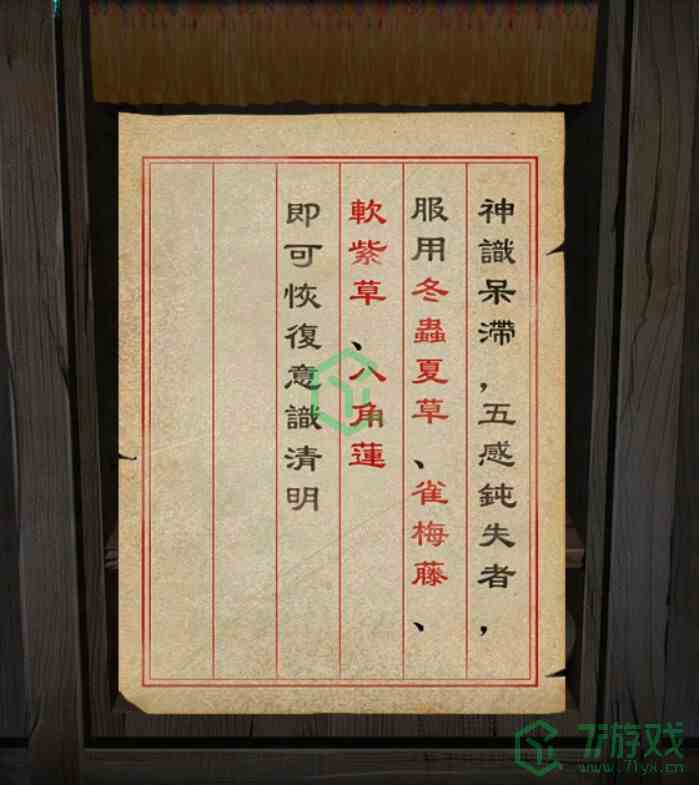 神識呆滯，五感鈍失者，
服用冬蟲夏草、雀梅藤、
軟紫草、八角蓮
即可恢復意識清明
7游戏
www.71yx.cn